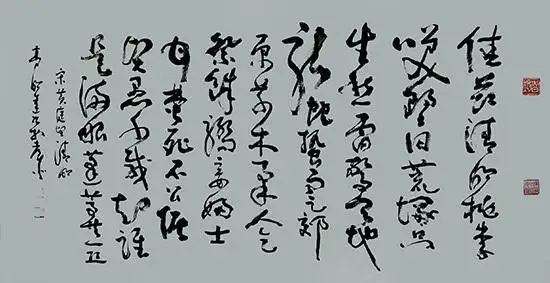 佳節清明桃李
笑野田荒塚只
生愁雷驚天地
龍蛇蟄雨足郊
原草木柔人乞
祭餘驕妾婦士
甘焚死不公侯
賢愚千載知誰
是滿眼蓬蒿共一丘
宋黃庭堅清明